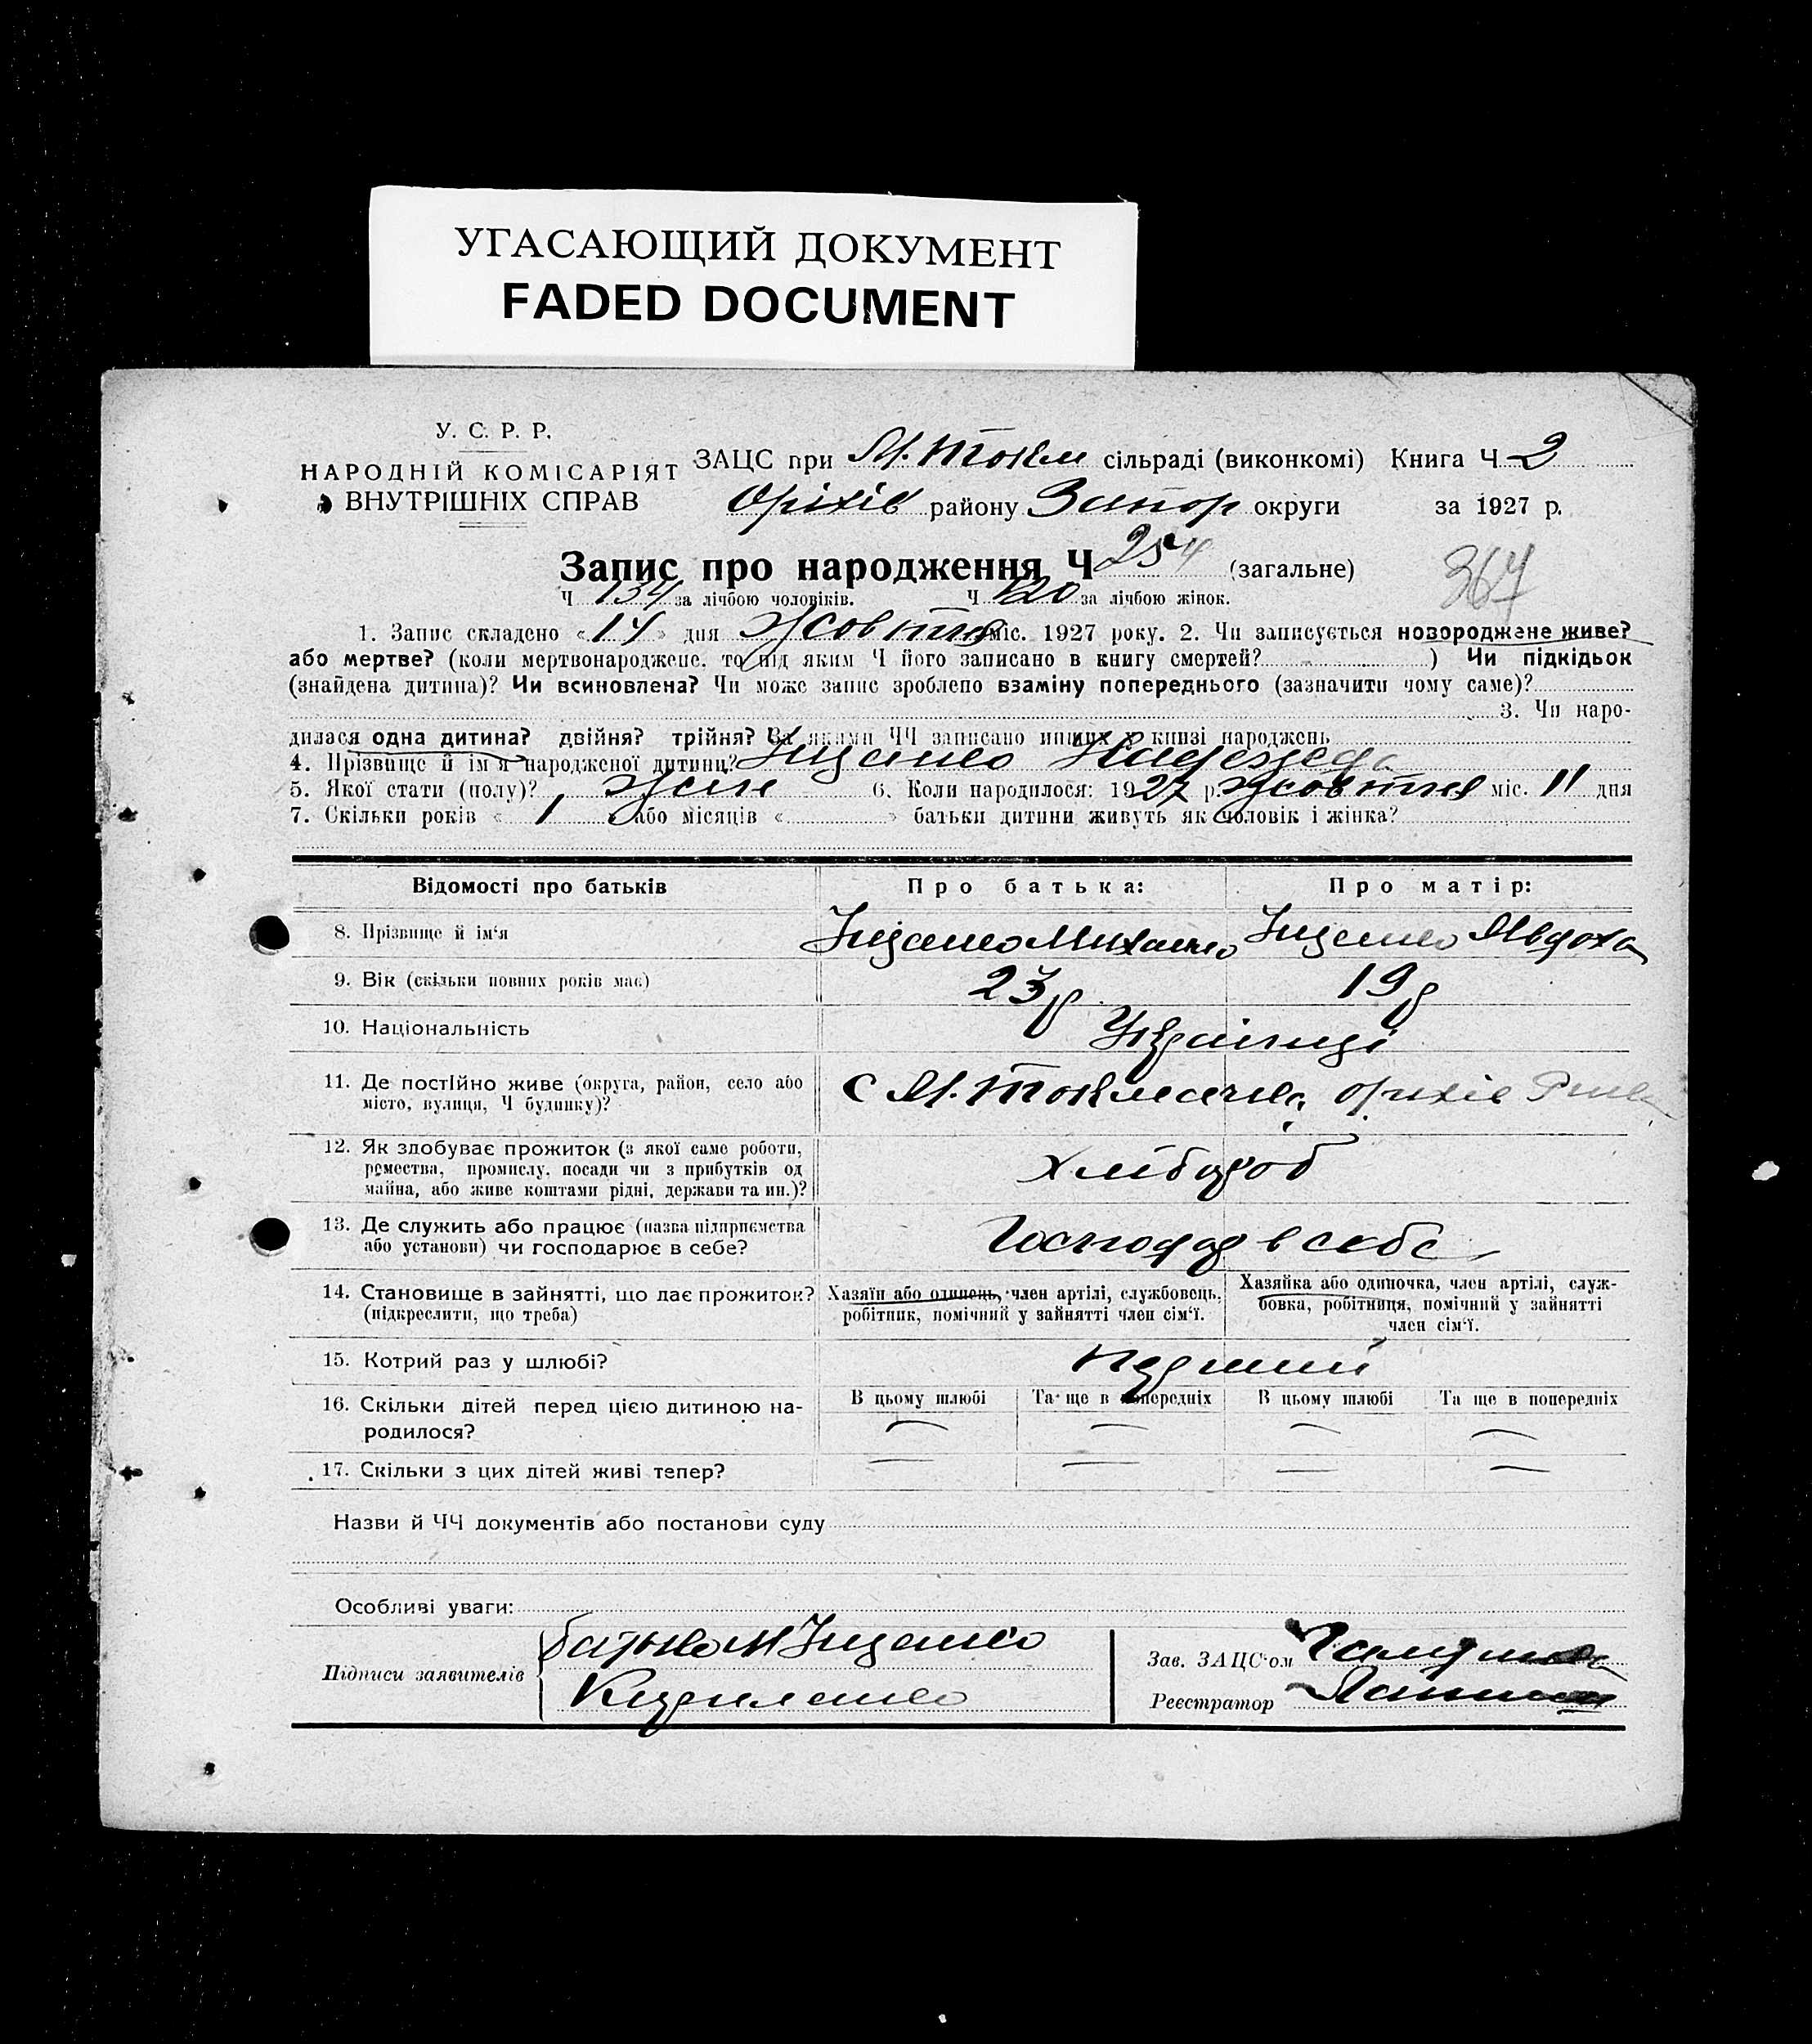 УГАСАЮЩИЙ ДОКУМЕНТ
FADED DOCUMENT
У. С. Р. Р.
НАРОДНІЙ КОМІСАРІЯТ
ВНУТРІШНІХ СПРАВ
ЗАЦС при М. Токм сільраді (виконкомі) Книга Ч 2
Оріхів району Запор округи за 1927 р.
Запис про народження Ч 254 (загальне)
367
Ч 134 за лічбою чоловіків. Ч 120 за лічбою жінок.
1. Запис складено «14» дня Жовтня міс. 1927 року. 2. Чи записується новороджене живе?
або мертве? (коли мертвонароджене, то під яким Ч його записано в книгу смертей? ) Чи підкідьок
(знайдена дитина)? Чи всиновлена? Чи може запис зроблено взаміну попереднього (зазначити чому саме)?
3. Чи наро-
дилася одна дитина? двійня? трійня? За якими ЧЧ записано инших у книзі народжень
4. Прізвище й ім'я народженої дитини? Іщенко Надежда
5. Якої стати (полу)? Жін 6. Коли народилося: 1927 р. Жовтня міс. 11 дня
7. Скільки років « 1 » або місяців « » батьки дитини живуть як чоловік і жінка?
Відомості про батьків Про батька: Про матір:
8. Прізвище й ім'я Іщенко Михайло Іщенко Явдоха
9. Вік (скільки повних років має) 23 р 19 р
10. Національність Українці
11. Де постійно живе (округа, район, село або
місто, вулиця, Ч будинку)? С М. Токмачка, Оріхів
12. Як здобуває прожиток (з якої саме роботи,
ремества, промислу, посади чи з прибутків од
майна, або живе коштами рідні, держави та ин.)? хлібороб
13. Де служить або працює (назва підприємства
або установи) чи господарює в себе? Господар в себе
14. Становище в зайнятті, що дає прожиток?
(підкреслити, що треба)
Хазяїн або одинець, член артілі, службовець,
робітник, помічний у зайнятті член сім'ї.
Хазяйка або одиночка, член артілі, служ-
бовка, робітниця, помічний у зайнятті
член сім'ї.
15. Котрий раз у шлюбі? перший
16. Скільки дітей перед цією дитиною на-
родилося?
В цьому шлюбі Та ще в попередніх В цьому шлюбі Та ще в попередніх
— — — —
17. Скільки з цих дітей живі тепер? — — — —
Назви й ЧЧ документів або постанови суду
Особливі уваги:
Підписи заявителів батько М Іщенко
Кириленко
Зав. ЗАЦС'ом
Реєстратор